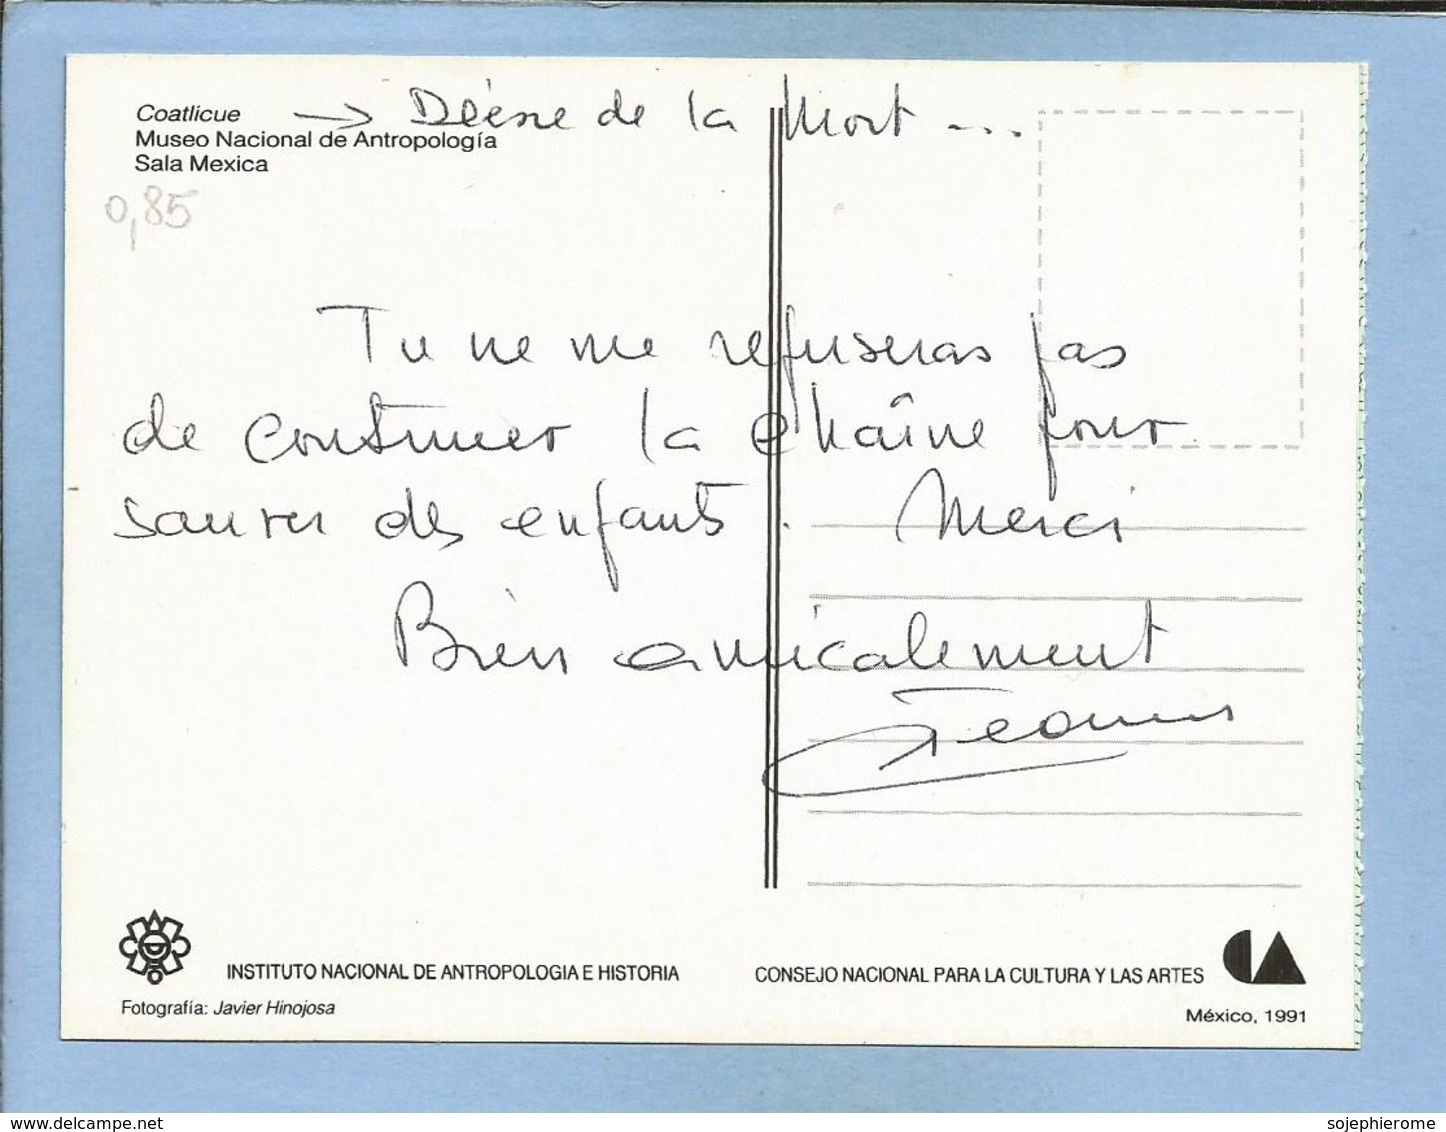 Coatlicue → Déesse de la Mort ...
Museo Nacional de Antropología
Sala Mexica
0,85
Tu ne me refuseras pas
de continuer la chaîne pour
sauver des enfants. Merci
Bien amicalement
INSTITUTO NACIONAL DE ANTROPOLOGIA E HISTORIA
CONSEJO NACIONAL PARA LA CULTURA Y LAS ARTES
Fotografía: Javier Hinojosa
México, 1991
www.delcampe.net
sojephierome